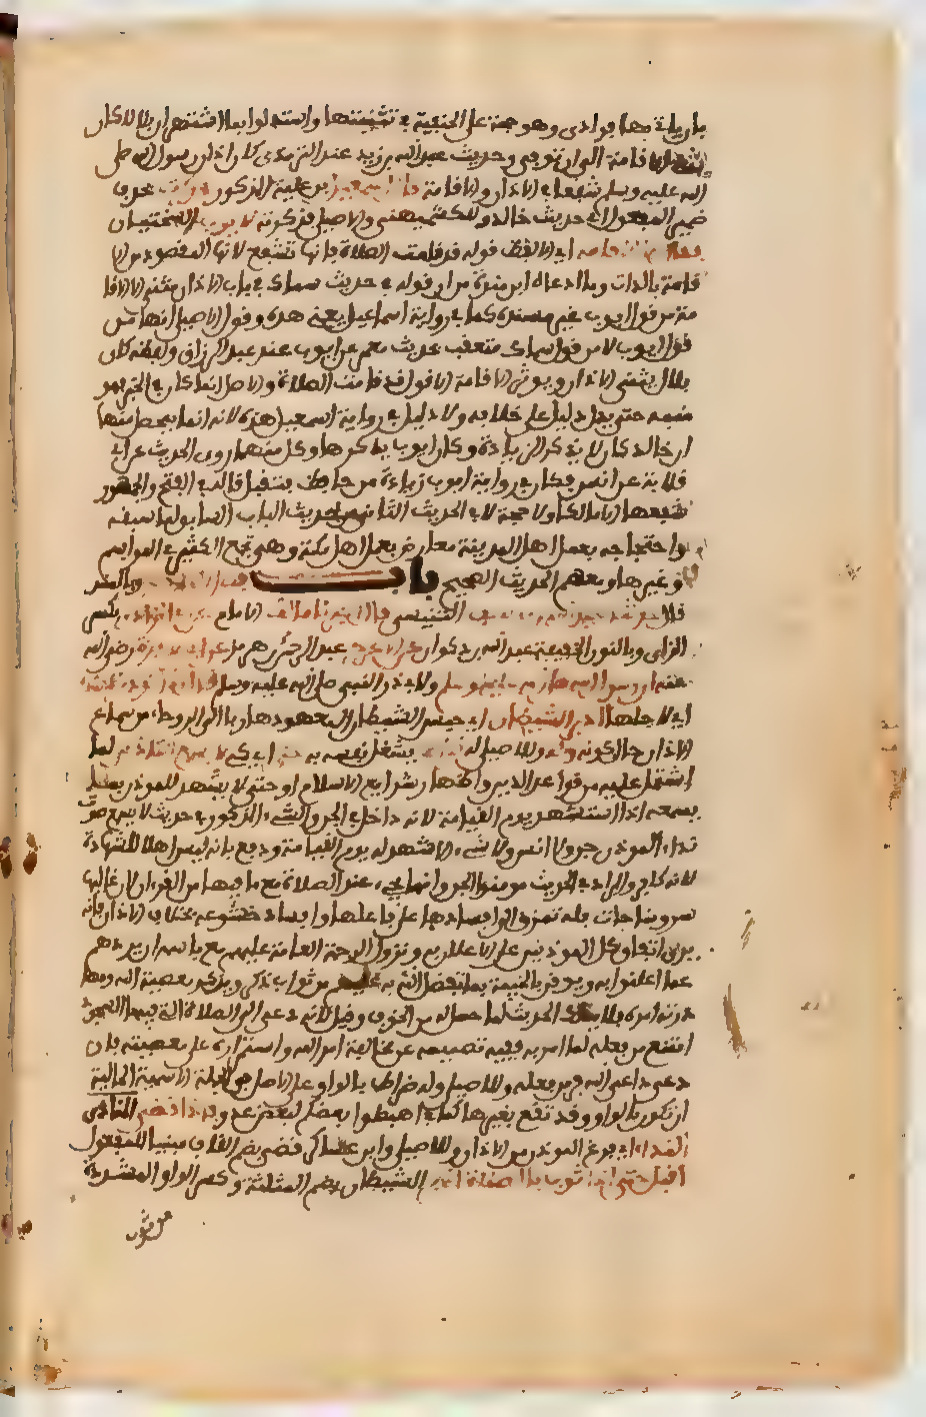 باريادتها فرادى وهو حجة على الحنفية في تثنيتها واستدلوا بما اشتهر ان بلالا كان
يثني الاقامة الى ان توفي وحديث عبد الله بن زيد عند الترمذي كان اذان رسول الله صلى
الله عليه وسلم شفعا في الاذان والاقامة قال اسمعيل بن علية المذكور فذكرت بحذف
ضمير المفعول اي حديث خالد وللكشميهني والاصيلي فذكرته لايوب السختياني
فقال الا الاقامة اي الا لفظ قوله قد قامت الصلاة فانها تشفع لانها المقصود من الا
قامة بالذات وما ادعاه ابن منده من ان قوله في حديث سماك في باب الاذان مثنى الا الاقا
مة من قول ايوب غير مسندة كما في رواية اسماعيل يعني هذه وقول الاصيلي انها من
قول ايوب لا من قول سماك متعقب بحديث معمر عن ايوب عند عبد الرزاق ولفظه كان
بلال يثني الاذان ويوتر الاقامة الا قوله قد قامت الصلاة والاصل ان ما كان في الخبر فهو
منه حتى يدل دليل على خلافه ولا دليل في رواية اسمعيل هذه لانه انما يحصل منها
ان خالدا كان لا يذكر الزيادة وكان ايوب يذكرها وكل منهما روى الحديث عن ابي
قلابة عن انس فكان في رواية ايوب زيادة من حافظ فتقبل قاله في الفتح والجمهور
شفعها الا مالكا ولا حجة له في الحديث الثاني من حديث الباب السابق لما سبق
واحتجاجه بعمل اهل المدينة معارض بعمل اهل مكة وهي تجمع الكثير في المواسم
وغيرها ومعهم الحديث الصحيح باب فضل التاذين وبالسند
قال حدثنا عبد الله بن يوسف التنيسي قال اخبرنا مالك الامام عن ابي الزناد بكسر
الزاي وبالنون الخفيفة عبد الله بن ذكوان عن الاعرج عبد الرحمن بن هرمز عن ابي هريرة رضي الله
عنه ان رسول الله صلى الله عليه وسلم ولابي ذر ان النبي صلى الله عليه وسلم قال اذا نودي للصلاة
اي لاجلها ادبر الشيطان اي جنس الشيطان او المعهود هاربا الى الروحاء من سماع
الاذان حال كونه وله وللاصيلي له ضراط يشغل نفسه به حتى اي كي لا يسمع التاذين لما
اشتمل عليه من قواعد الدين واظهار شرائع الاسلام او حتى لا يشهد للمؤذن بما
يسمعه اذا استشهد يوم القيامة لانه داخل في الجن والشيء المذكور في حديث لا يسمع صوت
نداء المؤذن جن ولا انس ولا شيء الا شهد له يوم القيامة ودفع بانه ليس اهلا للشهادة
لانه كافر والمراد في الحديث مومنو الجن وانما يجيء عند الصلاة مع ما فيها من القرءان لان غالبها
سر ومناجات فله تطرق الى افسادها على فاعلها وافساد خشوعه بخلاف الاذان فانه
يرى اتفاق كل المؤذنين على الاعلان به ونزول الرحمة العامة عليهم مع ياسه ان يردهم
عما اعلنوا به ويوقن بالخيبة بما تفضل الله به عليهم من ثواب ذلك ويذكر معصية الله ومضا
ددته امره فلا يملك الحدث لما حصل له من الخوف وقيل لانه دعي الى الصلاة التي فيها السجود
امتنع من فعله لما امر به ففيه تصميمه على مخالفة امر الله واستمراره على معصيته فان
دعى داعي الله فر من فعله وللاصيلي وله ضراط بالواو على الاصل في الجملة الاسمية الحالية
ان تكون بالواو وقد تقع بغيرها كما في اهبطوا بعضكم لبعض عدو فاذا قضى المنادي
النداء اي فرغ المؤذن من الاذان وللاصيلي وابن عساكر قضي بضم القاف مبنيا للمفعول
اقبل حتى اذا ثوب بالصلاة ادبر الشيطان بضم المثلثة وكسر الواو المشددة
من ثوب